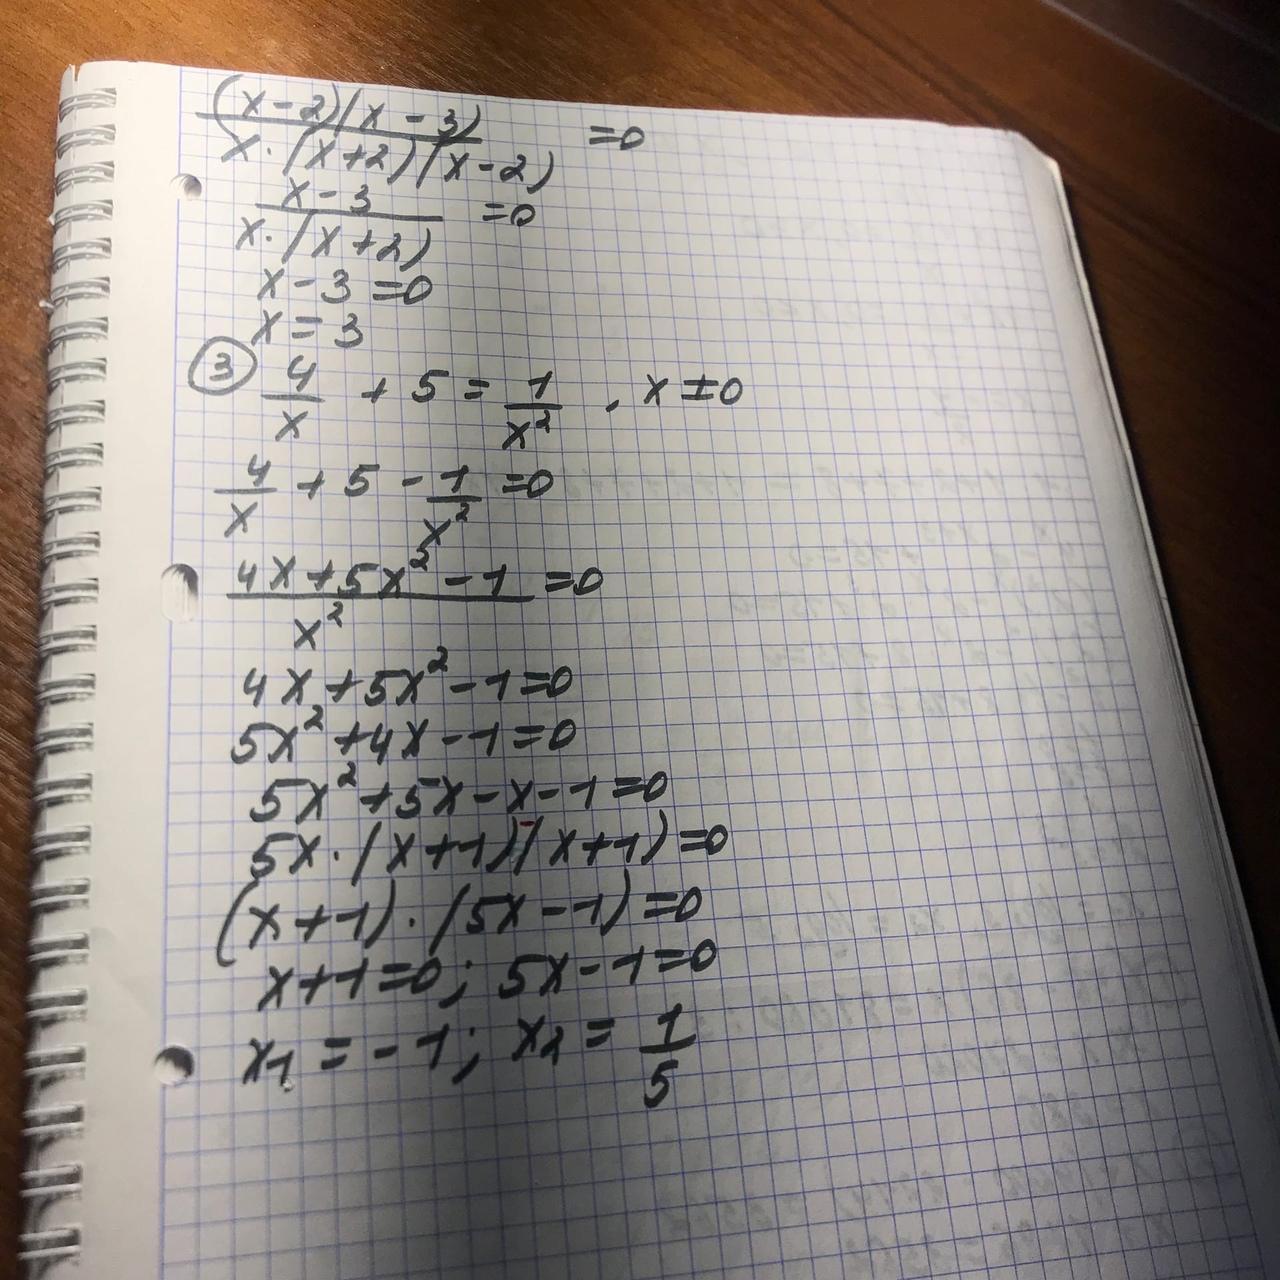 (x-2)(x-3)/x·(x+2)(x-2) =0
x-3/x·(x+2) =0
x-3=0
x=3
③ 4/x + 5 = 1/x², x±0
4/x + 5 - 1/x² =0
4x+5x²-1/x² =0
4x+5x²-1=0
5x²+4x-1=0
5x²+5x-x-1=0
5x·(x+1)-(x+1)=0
(x+1)·(5x-1)=0
x+1=0; 5x-1=0
x₁=-1; x₂=1/5